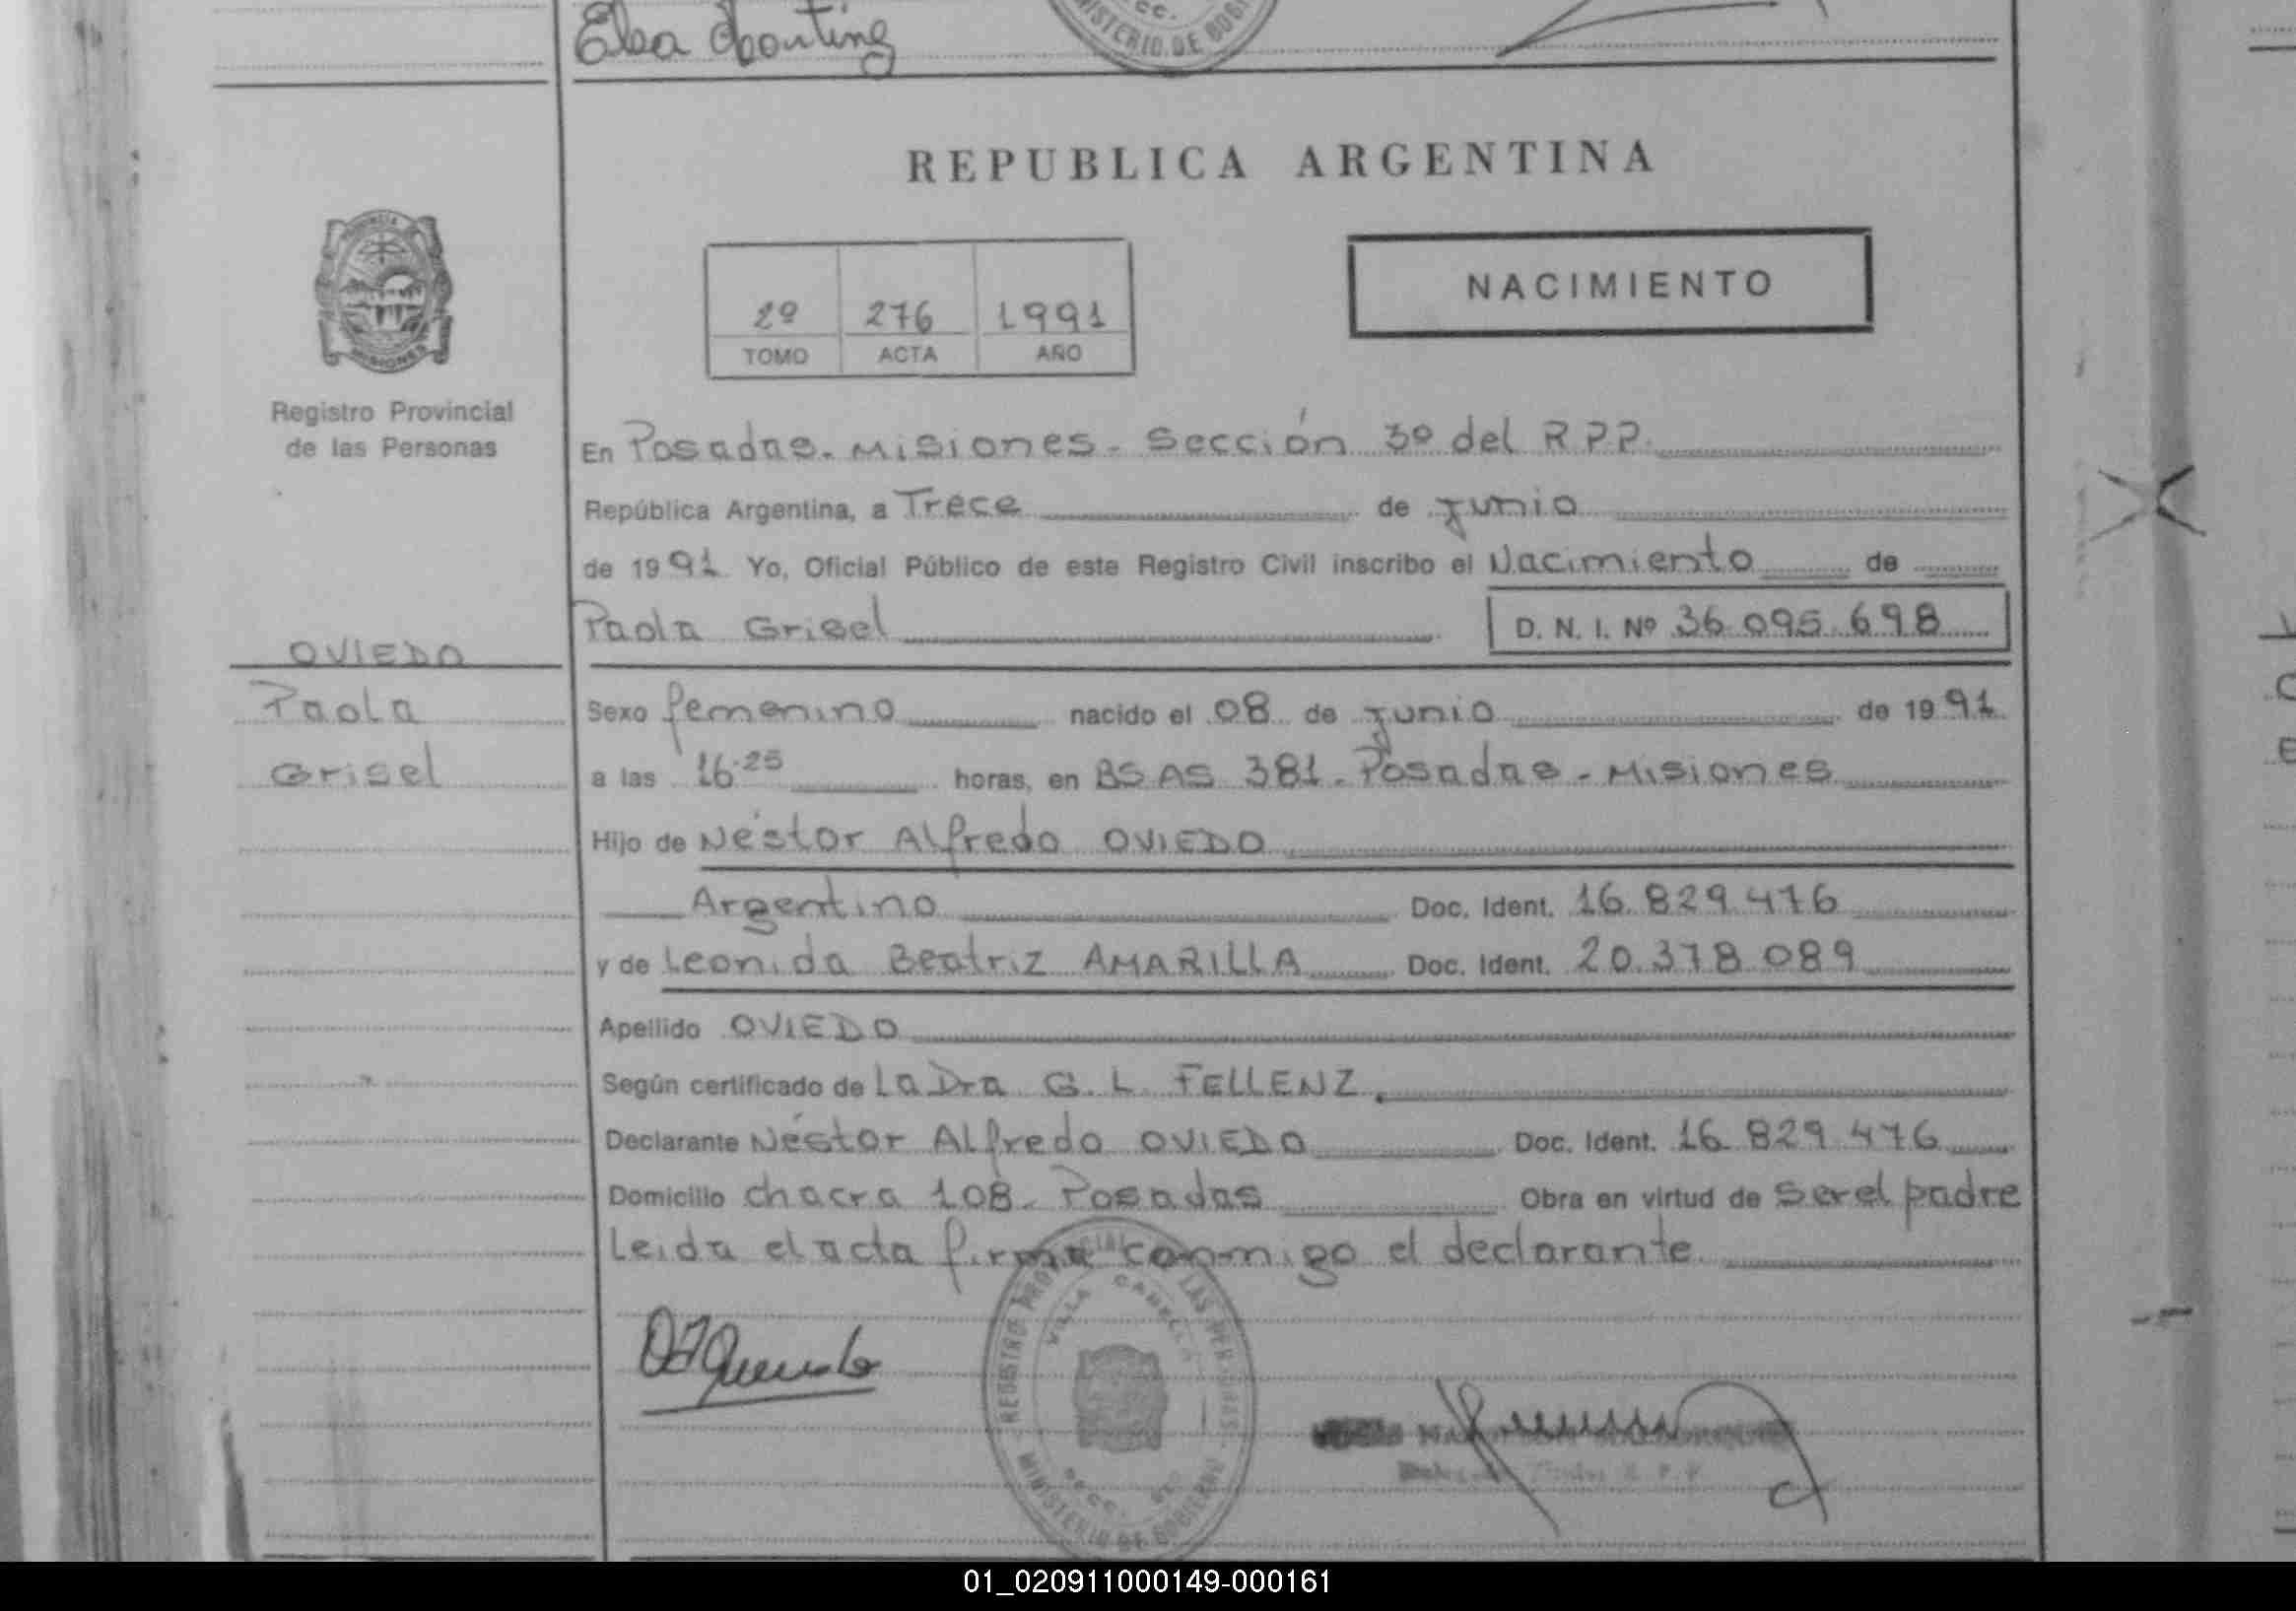 Elsa
MINISTERIO DE GOBI
REPUBLICA ARGENTINA
NACIMIENTO
2º 276 1991
TOMO ACTA AÑO
PROVINCIA
MISIONES
Registro Provincial
de las Personas
En Posadas. Misiones. Sección 3º del R.P.P.
República Argentina, a Trece de junio
de 1991 Yo, Oficial Público de este Registro Civil inscribo el Nacimiento de
Paola Grisel D. N. I. Nº 36.095.698
OVIEDO
Paola
Grisel
Sexo femenino nacido el 08 de junio de 1991
a las 16.25 horas, en BS AS 381. Posadas - Misiones
Hijo de Néstor Alfredo OVIEDO
Argentino Doc. Ident. 16.829.476
y de Leonida Beatriz AMARILLA Doc. Ident. 20.378.089
Apellido OVIEDO
Según certificado de La Dra G. L. FELLENZ.
Declarante Néstor Alfredo OVIEDO Doc. Ident. 16.829.476
Domicilio chacra 108. Posadas Obra en virtud de ser el padre
Leida el acta firma conmigo el declarante
REGISTRO PROVINCIAL DE LAS PERSONAS
VILLA CABELLO
SECC.
MINISTERIO DE GOBIERNO
01_020911000149-000161